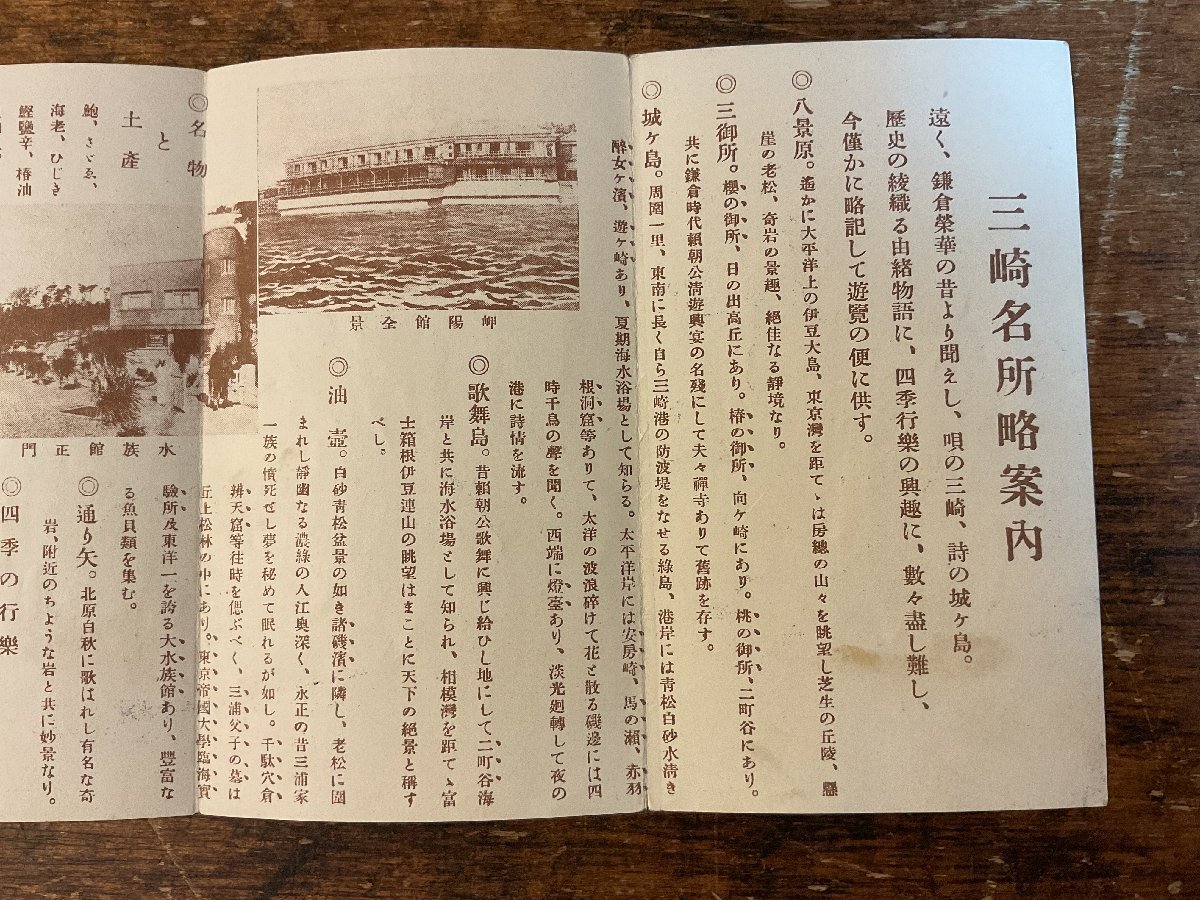 三崎名所略案內
遠く、鎌倉榮華の昔より聞えし、唄の三崎、詩の城ヶ島。
歷史の綾織る由緒物語に、四季行樂の興趣に、數々盡し難し、
今僅かに略記して遊覽の便に供す。
◎八景原。遙かに大平洋上の伊豆大島、東京灣を距てゝは房總の山々を眺望し芝生の丘陵、懸
崖の老松、奇岩の景趣、絕佳なる靜境なり。
◎三御所。櫻の御所、日の出高丘にあり。椿の御所、向ヶ崎にあり。桃の御所、二町谷にあり。
共に鎌倉時代賴朝公淸遊興宴の名殘にして夫々禪寺ありて舊跡を存す。
◎城ヶ島。周圍一里、東南に長く自ら三崎港の防波堤をなせる綠島、港岸には靑松白砂水淸き
醉女ヶ濱、遊ヶ崎あり、夏期海水浴場として知らる。太平洋岸には安房崎、馬の瀨、赤羽
根洞窟等ありて、太洋の波浪碎けて花と散る磯邊には四
時千鳥の聲を聞く。西端に燈臺あり、淡光廻轉して夜の
港に詩情を流す。
◎歌舞島。昔賴朝公歌舞に興じ給ひし地にして二町谷海
岸と共に海水浴場として知られ、相模灣を距てゝ富
士箱根伊豆連山の眺望はまことに天下の絕景と稱す
べし。
◎油壺。白砂靑松盆景の如き諸磯濱に隣し、老松に圍
まれし靜幽なる濃綠の入江奧深く、永正の昔三浦家
一族の憤死せし夢を秘めて眠れるが如し。千駄穴倉
辨天窟等往時を偲ぶべく、三浦父子の墓は
丘上松林の中にあり。東京帝國大學臨海實
驗所及東洋一を誇る大水族館あり、豐富な
る魚貝類を集む。
◎通り矢。北原白秋に歌はれし有名な奇
岩、附近のちような岩と共に妙景なり。
◎四季の行樂
岬陽館全景
水族館正門
◎名物
と
土產
鮑、さゞゑ、
海老、ひじき
鰹鹽辛、椿油